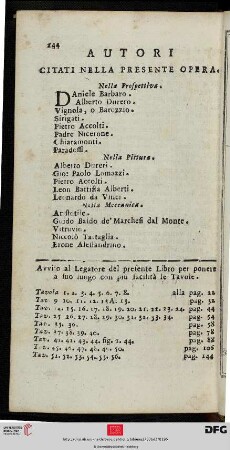 144
AUTORI
CITATI NELLA PRESENTE OPERA.
Nella Prospettiva.
Daniele Barbaro.
Alberto Durero.
Vignola, o Barozzio.
Sirigati.
Pietro Accolti.
Padre Nicerone.
Chiaramonti.
Paradossi.
Nella Pittura.
Alberto Dureri.
Gio: Paolo Lomazzi.
Pietro Accolti.
Leon Battista Alberti.
Leonardo da Vinci.
Nella Meccanica.
Aristotile.
Guido Baldo de' Marchesi dal Monte.
Vitruvio.
Niccolò Tartaglia.
Erone Alessandrino.
Avviso al Legatore del presente Libro per ponere
a suo luogo con più facilità le Tavole.
Tavola 1. 2. 3. 4. 5. 6. 7. 8. alla pag. 22
Tav. 9. 10. 11. 12. 13. pag. 32
Tav. 14. 15. 16. 17. 18. 19. 20. 21. 22. 23. 24. pag. 44
Tav. 25. 26. 27. 28. 29. 30. 31. 32. 33. 34. pag. 54
Tav. 35. 36. pag. 58
Tav. 37. 38. 39. 40. pag. 78
Tav. 41. 42. 43. 44. fig. 2. 44. pag. 88
T. 45. 46. 47. 48. 49. 50. pag. 106
Tav. 51. 52. 53. 54. 55. 56. pag. 144